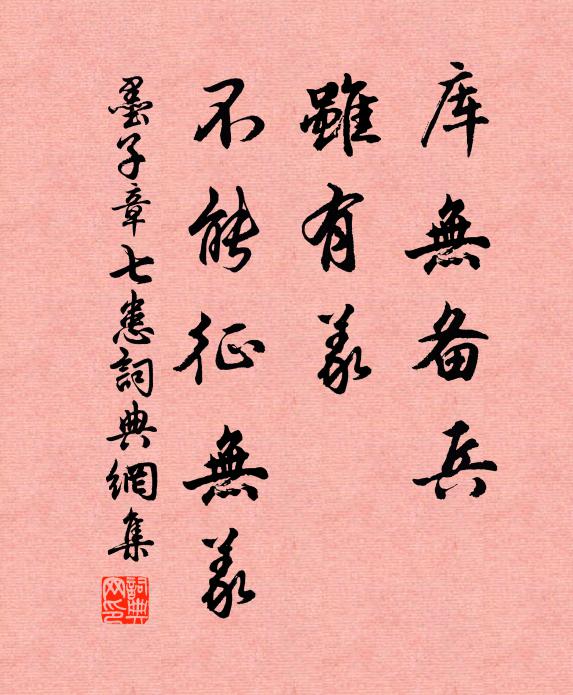 库無备兵
雖有義
不能征無義
墨子章七患詞典網集
詞典網印